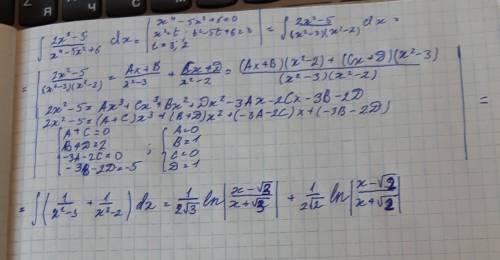 ∫ (2x²-5)/(x⁴-5x²+6) dx = | x⁴-5x²+6=0 x²=t, t²-5t+6=0 t=3; 2 | = ∫ (2x²-5)/((x²-3)(x²-2)) dx =
= | (2x²-5)/((x²-3)(x²-2)) = (Ax+B)/(x²-3) + (Cx+D)/(x²-2) = ((Ax+B)(x²-2)+(Cx+D)(x²-3))/((x²-3)(x²-2))
2x²-5=Ax³+Cx³+Bx²+Dx²-3Ax-2Cx-3B-2D
2x²-5=(A+C)x³+(B+D)x²+(-3A-2C)x+(-3B-2D) | =
{ A+C=0 ; { A=0
B+D=2 B=1
-3A-2C=0 C=0
-3B-2D=-5 D=1
= ∫ (1/(x²-3) + 1/(x²-2)) dx = 1/(2√3) ln |(x-√3)/(x+√3)| + 1/(2√2) ln |(x-√2)/(x+√2)|